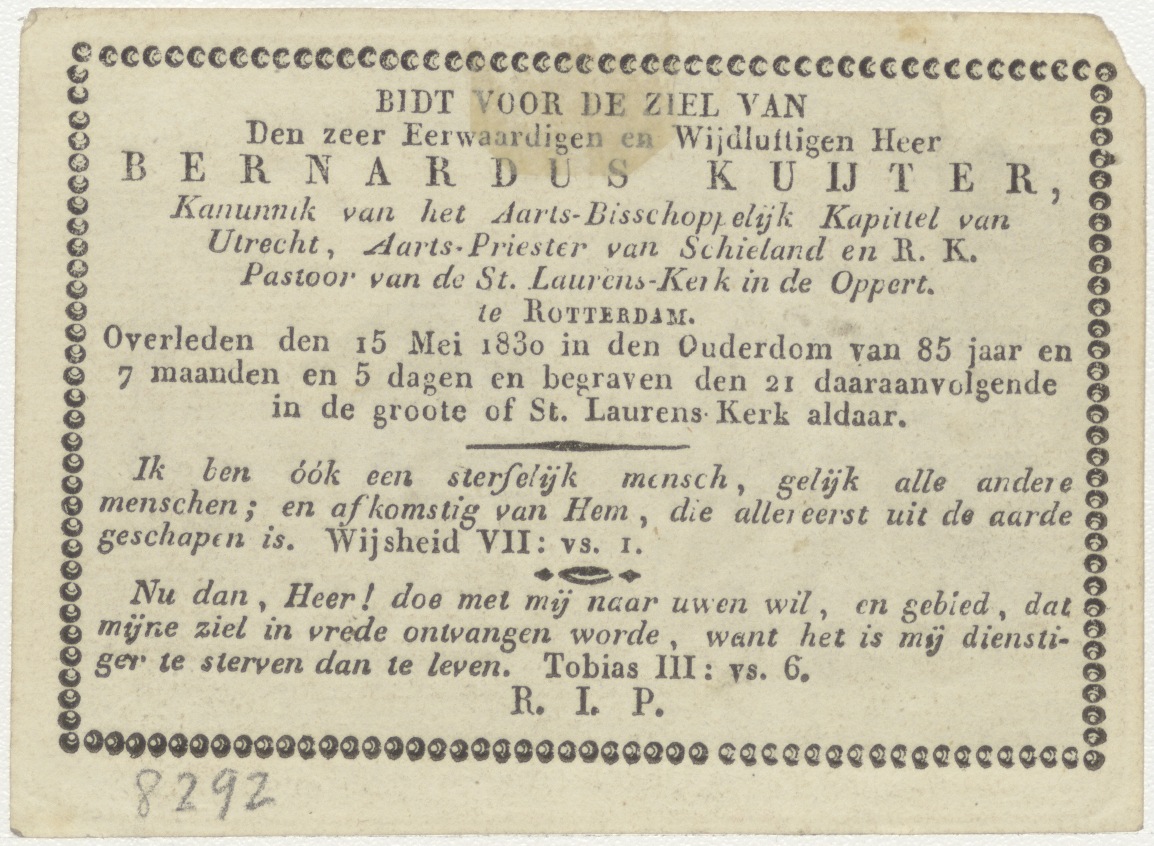 BIDT VOOR DE ZIEL VAN
Den zeer Eerwaardigen en Wijdluftigen Heer
BERNARDUS KUIJTER,
Kanunnik van het Aarts-Bisschoppelijk Kapittel van
Utrecht, Aarts-Priester van Schieland en R. K.
Pastoor van de St. Laurens-Kerk in de Oppert.
te ROTTERDAM.
Overleden den 15 Mei 1830 in den Ouderdom van 85 jaar en
7 maanden en 5 dagen en begraven den 21 daaraanvolgende
in de groote of St. Laurens-Kerk aldaar.
Ik ben óók een sterfelijk mensch, gelijk alle andere
menschen; en afkomstig van Hem, die allereerst uit de aarde
geschapen is. Wijsheid VII: vs. 1.
Nu dan, Heer! doe met mij naar uwen wil, en gebied, dat
mijne ziel in vrede ontvangen worde, want het is mij diensti-
ger te sterven dan te leven. Tobias III: vs. 6.
R. I. P.
8292